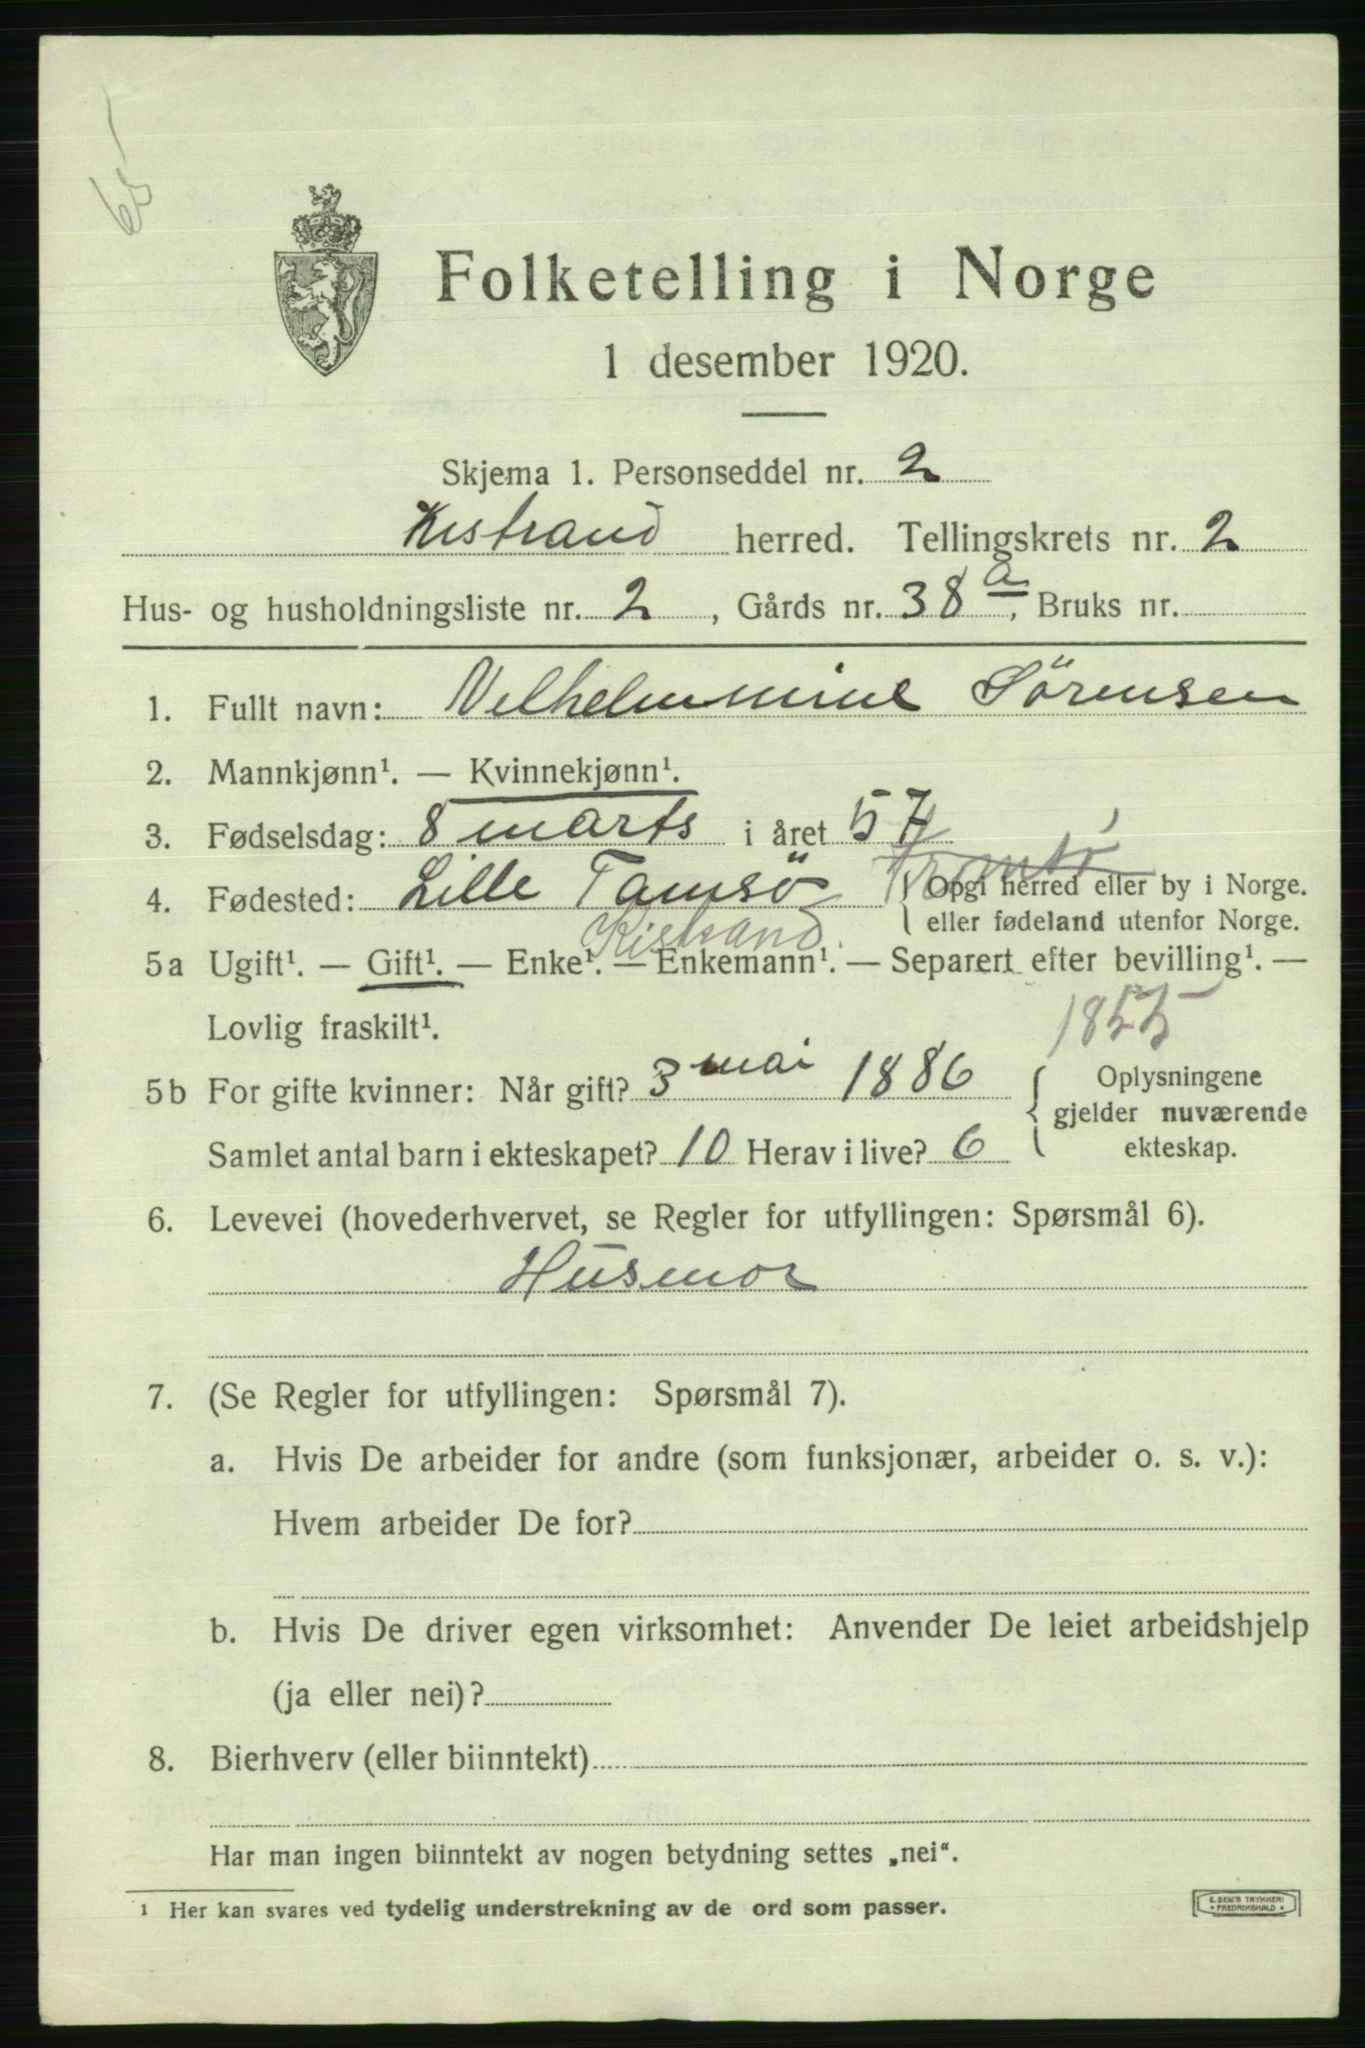 65
Folketelling i Norge
1 desember 1920.
Skjema 1. Personseddel nr. 2
Kistrand herred. Tellingskrets nr. 2
Hus- og husholdningsliste nr. 2, Gårds nr. 38 a, Bruks nr.
1. Fullt navn: Vilhelmmine Sörensen
2. Mannkjønn¹. — Kvinnekjønn¹.
3. Fødselsdag: 8 marts i året 57
4. Fødested: Lille Tamsö
Opgi herred eller by i Norge.
eller fødeland utenfor Norge.
Kistrand.
5a Ugift¹. — Gift¹. — Enke¹. — Enkemann¹. — Separert efter bevilling¹. —
Lovlig fraskilt¹.
1855
5b For gifte kvinner: Når gift? 3 mai 1886
Samlet antal barn i ekteskapet? 10 Herav i live? 6
Oplysningene
gjelder nuværende
ekteskap.
6. Levevei (hovederhvervet, se Regler for utfyllingen: Spørsmål 6).
Husmor
7. (Se Regler for utfyllingen: Spørsmål 7).
a. Hvis De arbeider for andre (som funksjonær, arbeider o. s. v.):
Hvem arbeider De for?
b. Hvis De driver egen virksomhet: Anvender De leiet arbeidshjelp
(ja eller nei)?
8. Bierhverv (eller biinntekt)
Har man ingen biinntekt av nogen betydning settes „nei“.
¹ Her kan svares ved tydelig understrekning av de ord som passer.
E. SEM'S TRYKKERI
FREDRIKSHALD